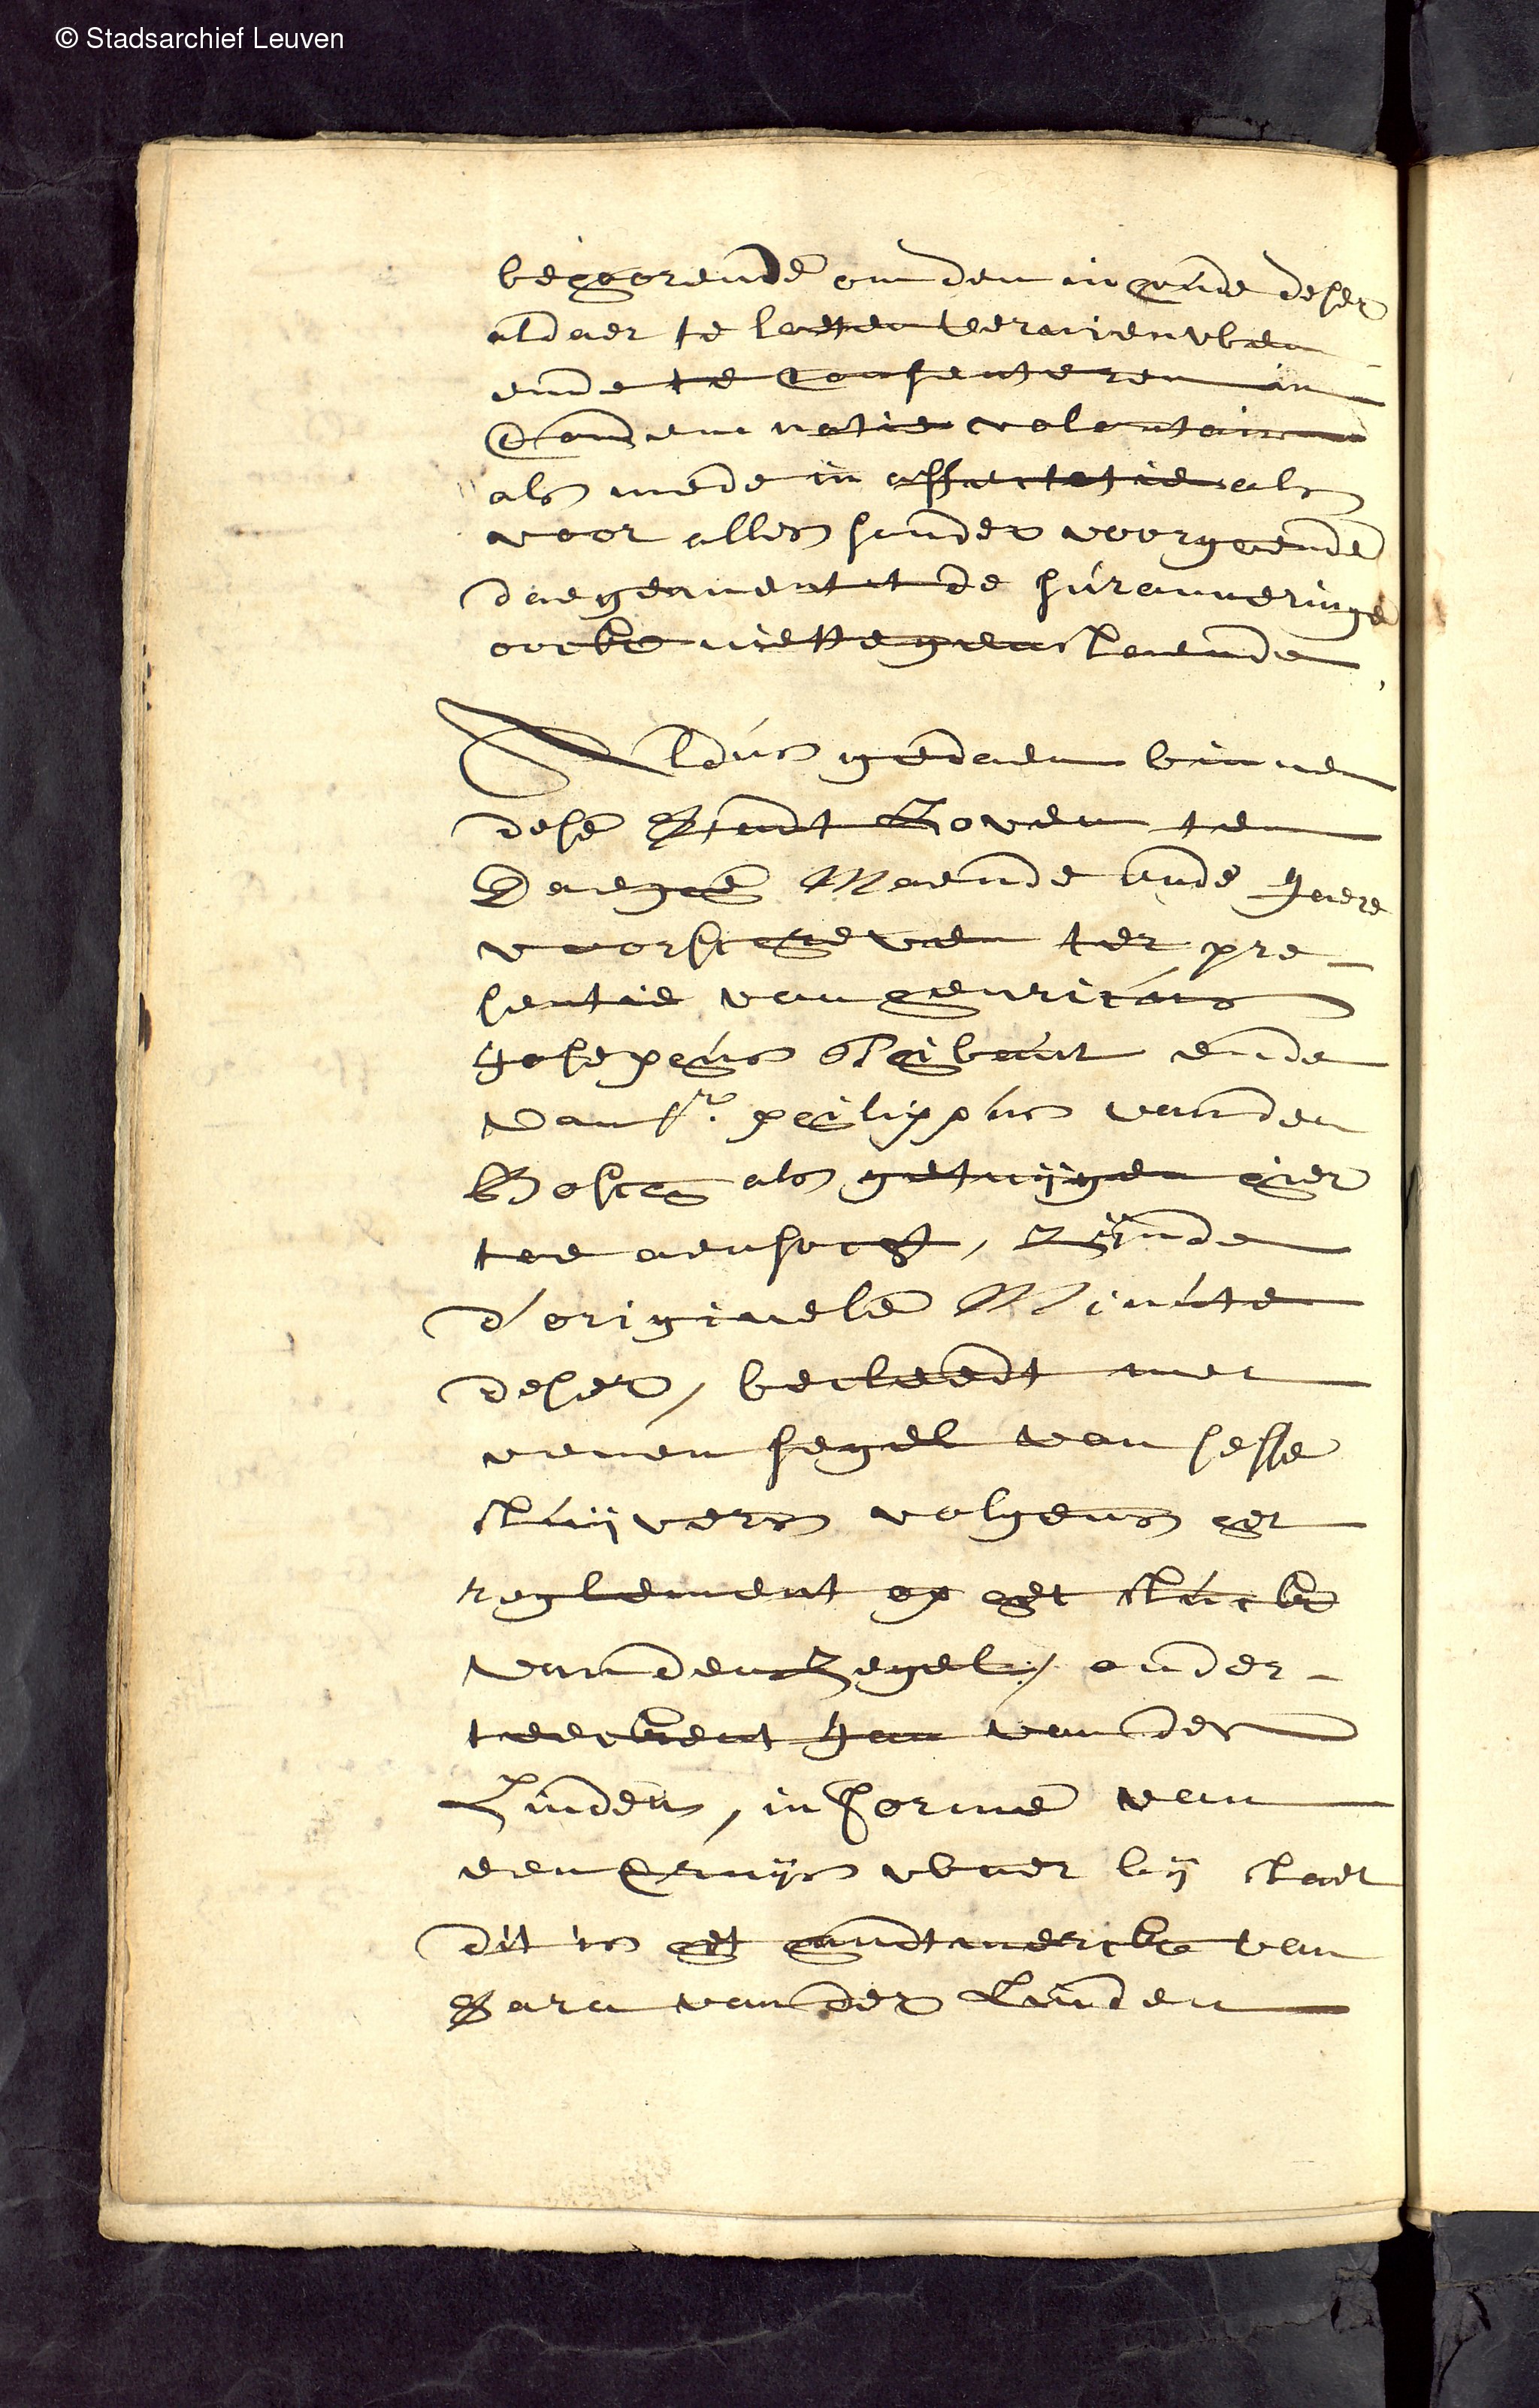 © Stadsarchief Leuven
behoorende om den inhoude deser
aldaer te laeten vernieuwen
ende te consenteren in
Condemnatie volontaire
als mede in affectatie als
voor alles sonder voorgaende
daegement de surannueringe
oock niettegenstaende
Aldus gedaen binnen
dese Stadt Loven ten
Daeghe Maende ende Jaere
voorschreven ter pre-
sentie van henricus
Josephus Thibaut ende
van sr. philippus vanden
Bosch als getuijgen hier
toe aensocht, zijnde
d'originele Minute
deser, becleedt met
eenen segel van sesse
stuijvers volgens het
reglement op het stuck
vanden Zegel, onder-
teeckent Jan van der
Linden, in forme van
een Cruijs waer bij staet
dit is het handtmercke van
Sara vander Linden